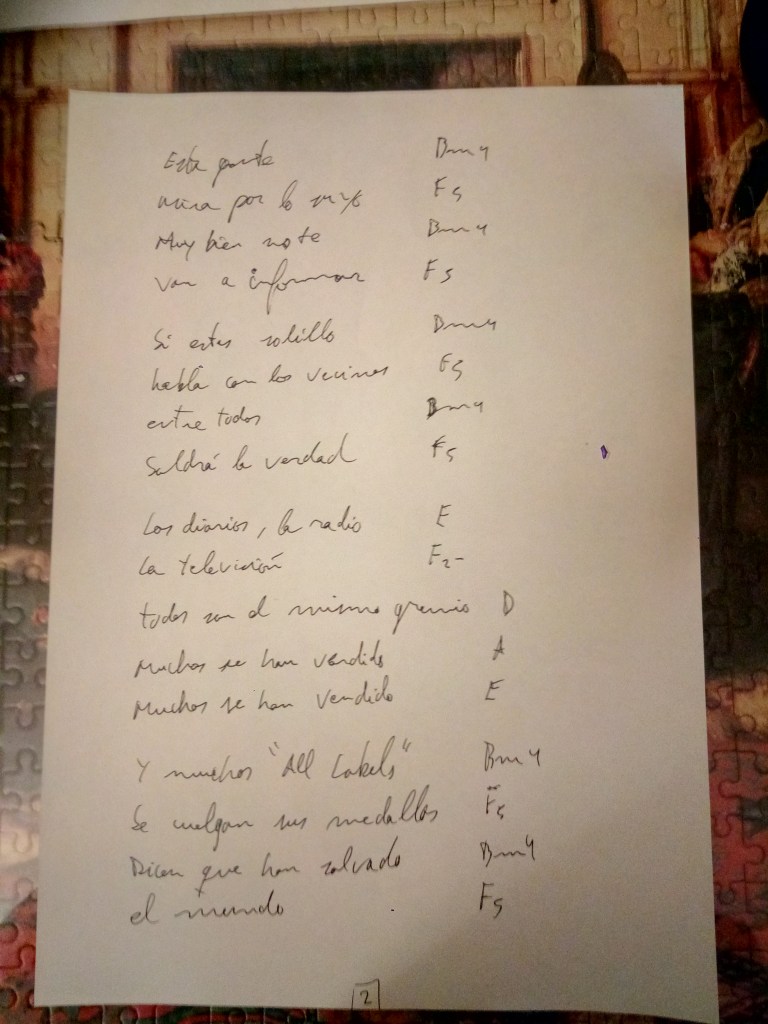 Esta gente Bm4
mira por lo suyo F5
Muy bien no te Bm4
van a informar F5
Si estás solillo Bm4
habla con los vecinos F5
entre todos Bm4
Saldrá la verdad F5
Los diarios, la radio E
La televisión F2-
todos son del mismo gremio D
Muchos se han vendido A
Muchos se han vendido E
Y muchos "All Labels" Bm4
Se cuelgan sus medallas F5
Dicen que han salvado Bm4
el mundo F5
2